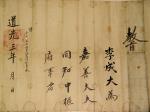 敎旨
李成大爲
嘉善大夫
同知中樞
府事者
道光三年 月 日